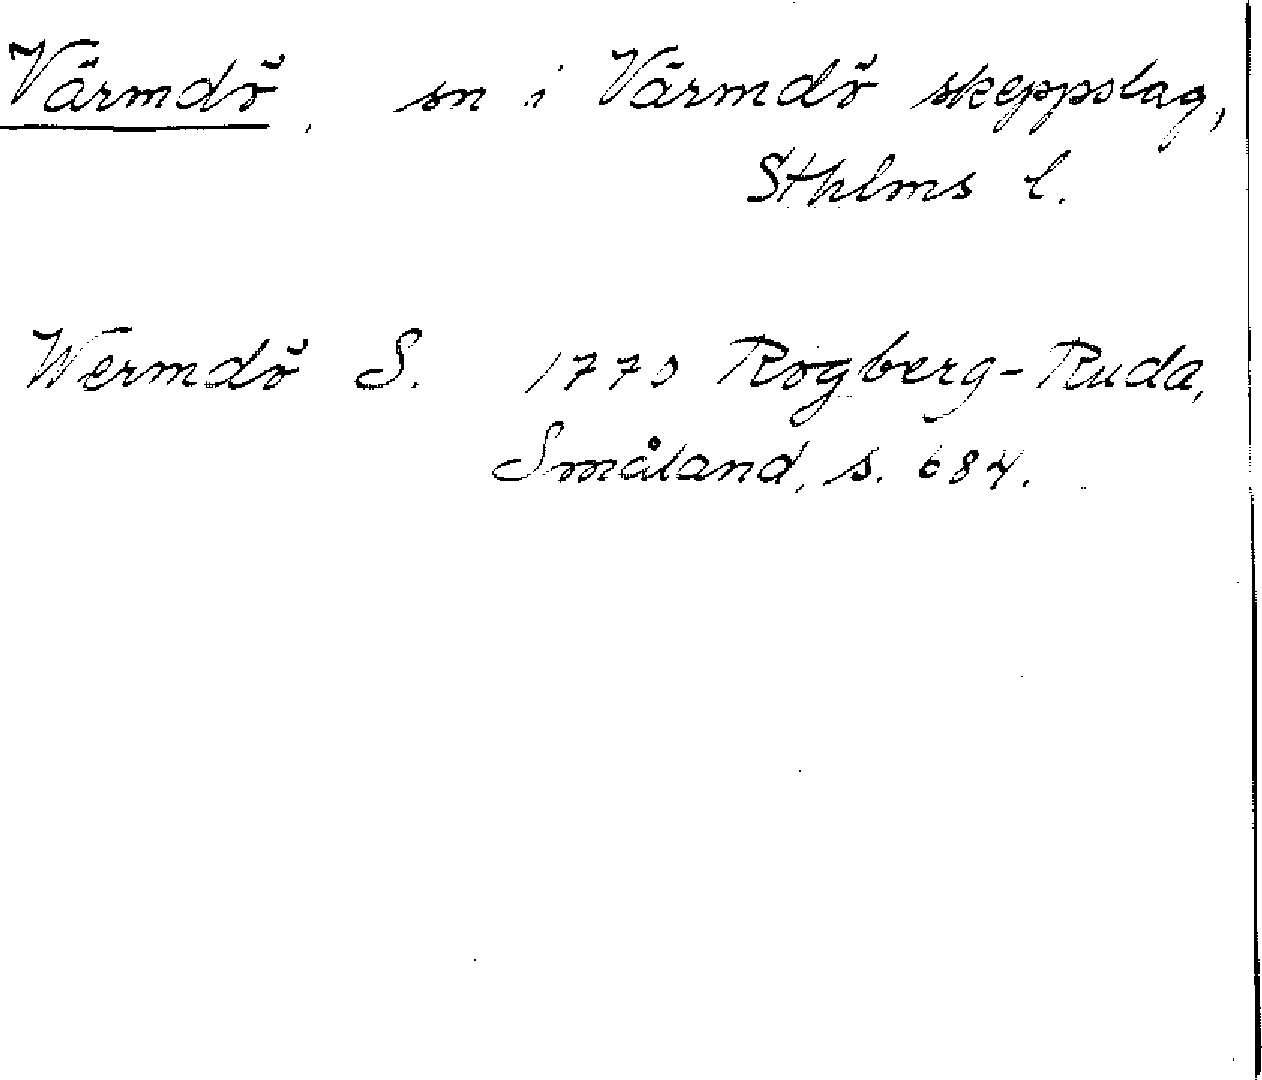 Värmdö, sn i Värmdö skeppslag,
Sthlms l.
Wermdö S. 1770 Rogberg-Ruda,
Småland, s. 684.